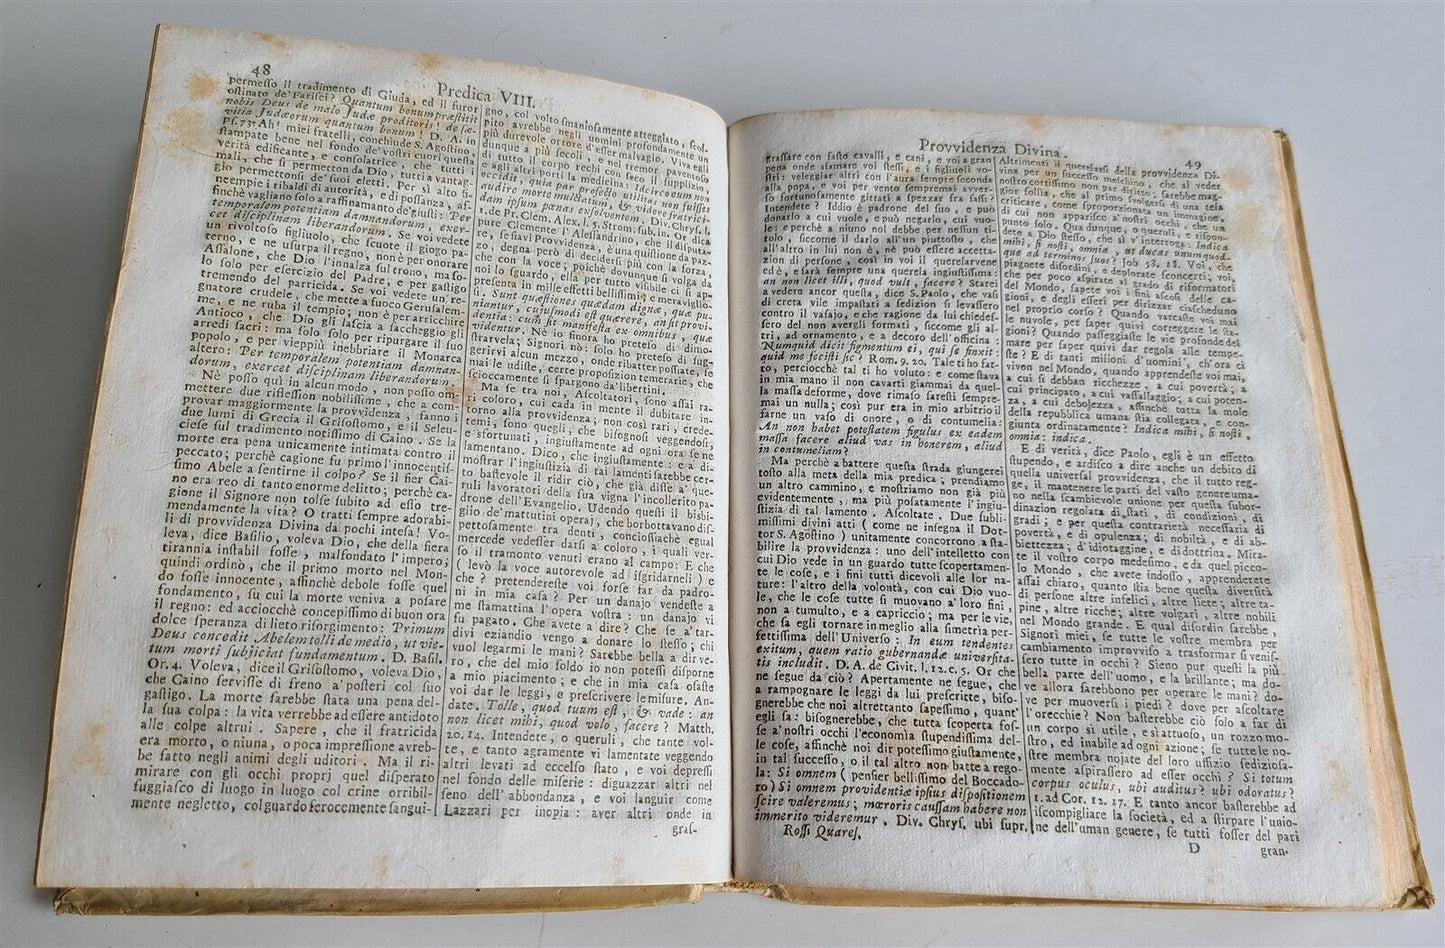 48
Predica VIII.
permesso il tradimento di Giuda, ed il furor
ostinato de' Farisei? Quantum bonum præstitit
nobis Deus de malo Judæ proditoris! de sæ-
vitia Judæorum quantum bonum! D. A. in
Ps. 73. Ah! miei fratelli, conchiude S. Agostino,
stampate bene nel fondo de' vostri cuori questa
verità edificante, e consolatrice, che tutti i
mali, che si permetton da Dio, tutti a vantag-
gio permettonsi de' suoi eletti. Per sì alto fi-
ne empie i ribaldi di autorità, ed i possanza, af-
finchè vagliano solo a raffinamento de' giusti: Per
temporalem potentiam damnandorum, exer-
cet disciplinam liberandorum. Se voi vedete
un rivoltoso figliuolo, che scuote il giogo pa-
terno, e ne usurpa il regno, non è per onorare
Assalone, che Dio l'innalza sul trono, ma so-
lo solo per esercizio del Padre, e per gastigo
tremendo del parricida. Se voi vedete un re-
gnatore crudele, che mette a fuoco Gerusalem-
me, e ne ruba il tempio; non è per arricchire
Antioco, che Dio gli lascia a saccheggio gli
arredi sacri: ma solo solo per ripurgare il suo
popolo, e per vieppiù inebbriare il Monarca
altero: Per temporalem potentiam damnan-
dorum, exercet disciplinam liberandorum.
Nè posso quì in alcun modo, non posso om-
mettere due riflessioni nobilissime, che a com-
provar maggiormente la provvidenza, fanno i
due lumi di Grecia il Grisostomo, e il Seleu-
ciese sul tradimento notissimo di Caino. Se la
morte era pena unicamente intimata contro il
peccato; perchè cagione fu primo l'innocentis-
simo Abele a sentirne il colpo? Se il fier Cai-
no era reo di tanto enorme delitto; perchè ca-
gione il Signore non tolse subito ad esso tre-
mendamente la vita? O tratti sempre adorabi-
li di provvidenza Divina da pochi intesa! Vo-
leva, dice Basilio, voleva Dio, che della fiera
tirannia instabil fosse, malfondato l'impero;
quindi ordinò, che il primo morto nel Mon-
do fosse innocente, affinchè debole fosse quel
fondamento, su cui la morte veniva a posare
il regno: ed acciocchè concepissimo di buon ora
dolce speranza di lieto risorgimento: Primum
Deus concedit Abelem tolli de medio, ut vie-
tum morti subjiciat fundamentum. D. Basil.
Or. 4. Voleva, dice il Grisostomo, voleva Dio,
che Caino servisse di freno a' posteri col suo
gastigo. La morte sarebbe stata una pena del-
la sua colpa: la vita verrebbe ad essere antidoto
alle colpe altrui. Sapere, che il fratricida
era morto, o niuna, o poca impressione avreb-
be fatto negli animi degli uditori. Ma il ri-
mirare con gli occhi proprj quel disperato
fuggiasco di luogo in luogo col crine orribil-
mente negletto, col guardo ferocemente sangui-
gno, col volto smaniosamente atteggiato, scol-
pito avrebbe negli uomini profondamente un
più durevole orrore d'esser malvagio. Viva egli
dunque a più secoli, e nel tremor paventoso
di tutto il corpo rechi con seco il supplizio,
e agli altri porti la medicina: Idcirco eum non
occidit, quia par præfecto utilitas non fuisset
audire morte multatum, & videre fratrici-
dam ipsum pœnas exsolventem. Div. Chrys. l.
1. de Pr. Clem. Alex. l. 5. Strom. sub. in. Or dica
pure Clemente l'Alessandrino, che il disputa-
re, se siavi Provvidenza, è una quistione da paz-
zo, degna però di decidersi più con la forza,
che con la voce; poichè dovunque si volga da
noi lo sguardo, ella per tutto visibile ci si ap-
presenta in mille effetti bellissimi, e meraviglio-
si. Sunt quæstiones quædam dignæ, quæ pu-
niantur, cujusmodi est quærere, an sit provi-
dentia: cum sit manifesta ex omnibus, quæ
videntur. Nè io finora ho preteso di dimo-
strarvela; Signori nò: solo ho preteso di sug-
gerirvi alcun mezzo, onde ribatter possiate, se
mai le udiste, certe proposizioni temerarie, che
scioccamente si spargono da' libertini.
Ma se tra noi, Ascoltatori, sono assai ra-
ri coloro, cui cada in mente il dubitare in-
torno alla provvidenza; non così rari, crede-
temi, sono quegli, che bisognosi veggendosi,
e sfortunati, ingiustamente ad ogni ora se ne
lamentano. Dico, che ingiustamente: e a di-
mostrar l'ingiustizia di tai lamenti sarebbe cer-
to bastevole il ridir ciò, che già disse a' que-
ruli lavoratori della sua vigna l'incollerito pa-
drone dell'Evangelio. Udendo questi il bisbi-
glio de' mattutini operaj, che borbottavano dis-
pettosamente tra denti, conciossiachè egual
mercede vedesser darsi a coloro, i quali ver-
so il tramonto venuti erano al campo: E che
(levò la voce autorevole ad isgridarneli) e
che? pretendereste voi forse far da padro-
ni in mia casa? Per un danajo vendeste a
me stamattina l'opera vostra: un danajo vi
fu pagato. Che avete a dire? Che se a' tar-
divi eziandio vengo a donare lo stesso; chi
vuol legarmi le mani? Sarebbe bella a dir ve-
ro, che del mio soldo io non potessi disporne
a mio piacimento; e che in mia casa osaste
voi dar le leggi, e prescrivere le misure. An-
date. Tolle, quod tuum est, & vade: an
non licet mihi, quod volo, facere? Matth.
20. 14. Intendete, o queruli, che tante vol-
te, e tanto agramente vi lamentate veggendo
altri levati ad eccelso stato, e voi depressi
nel fondo delle miserie: diguazzar altri nel
seno dell'abbondanza, e voi languir come
Lazzari per inopia: aver altri onde in-
gras-
Provvidenza Divina.
49
grassare con fasto cavalli, e cani, e voi a gran
pena onde sfamare voi stessi, e i figliuoli vo-
stri: veleggiar altri con l'aura sempre seconda
alla popa, e voi per vento sempremai avver-
so fortunosamente gittati a spezzar fra sassi?
Intendete? Iddio è padrone del suo, e può
donarlo a cui vuole, e può negarlo, cui vuo-
le: e perchè a niuno nol debbe per nessun ti-
tolo, siccome il darlo all'un piuttosto, che
all'altro in lui non è, nè può essere accetta-
zion di persone, così in voi il querelarvene
ed è, e sarà sempre una querela ingiustissima:
an non licet illi, quod vult, facere? Starei
a vedere ancor questa, dice S. Paolo, che vasi
di creta vile impastati a sedizion si levassero
contro il vasajo, e che ragione da lui chiedes-
sero del non avergli formati, siccome gli al-
tri, ad ornamento, e a decoro dell'officina:
Numquid dicit figmentum ei, qui se finxit:
quid me fecisti sic? Rom. 9. 20. Tale ti ho fat-
to, perciocchè tal ti ho voluto: e come stava
in mia mano il non cavarti giammai da quel-
la massa deforme, dove rimaso saresti sempre-
mai un nulla; così pur era in mio arbitrio il
farne un vaso di onore, o di contumelia:
An non habet potestatem figulus ex eadem
massa facere aliud vas in honorem, aliud
in contumeliam?
Ma perchè a battere questa strada giungerei
tosto alla meta della mia predica; prendiamo
un altro cammino, e mostriamo non già più
evidentemente, ma più posatamente l'ingiu-
stizia di tal lamento. Ascoltate. Due subli-
missimi divini atti (come ne insegna il Dot-
tor S. Agostino) unitamente concorrono a sta-
bilire la provvidenza: uno dell'intelletto con
cui Dio vede in un guardo tutte scopertamen-
te le cose, e i fini tutti dicevoli alle lor na-
ture: l'altro della volontà, con cui Dio vuo-
le, che le cose tutte si muovano a' loro fini,
non a tumulto, e a capriccio; ma per le vie,
che sa egli tornare in meglio alla simetria per-
fettissima dell'Universo: In eum tendentes
exitum, quem ratio gubernandæ universita-
tis includit. D. A. de Civit. l. 12. c. 5. Or che
ne segue da ciò? Apertamente ne segue, che
a rampognare le leggi da lui prescritte, biso-
gnerebbe che noi altrettanto sapessimo, quant'
egli sa: bisognerebbe, che tutta scoperta fos-
se a' nostri occhi l'economia stupendissima del-
le cose, affinchè noi dir potessimo giustamente,
in tal successo, o il tal altro non batte a rego-
la: Si omnem (pensier bellissimo del Boccado-
ro) Si omnem providentiæ ipsius dispositionem
scire valeremus; mœroris caussam habere non
immerito videremur. Div. Chrys. ubi supr.
Rossi Quares.
Altrimenti il querelarsi della provvidenza Di-
vina per un successo meschino, che al veder
nostro cortissimo non par diritto; sarebbe mag-
gior follia, che al primo svolgersi di una tela
criticare, come sproporzionata un immagine,
di cui non apparisce a' nostri occhi, che un
punto solo. Qua dunque, o queruli, e rispon-
dete a Dio stesso, che sì v'interroga: Indica
mihi, si nosti, omnia, ut ducas unumquod-
que ad terminos suos? Job 38. 18. Voi, che
piagnete disordini, e deplorate sconcerti; voi,
che per poco aspirate al grado di riformatori
del Mondo, sapete voi i fini ascosi delle ca-
gioni, e degli esseri per dirizzar ciascheduno
nel proprio corso? Quando varcaste voi mai
le nuvole, per saper quivi correggere le sta-
gioni? Quando passeggiaste le vie profonde del
mare per saper quivi dar regola alle tempe-
ste? E di tanti milioni d'uomini, ch'ora ci
vivon nel Mondo, quando apprendeste voi mai,
a cui si debban ricchezze, a cui povertà; a
cui principato, a cui vassallaggio; a cui poten-
za, a cui debolezza, affinchè tutta la mole
della repubblica umana stia collegata, e con-
giunta ordinatamente? Indica mihi, si nosti,
omnia: indica.
E di verità, dice Paolo, egli è un effetto
stupendo, e ardisco a dire anche un debito di
quella universal provvidenza, che il tutto reg-
ge, il mantenere le parti del vasto genere uma-
no nella scambievole unione per questa subor-
dinazion regolata di stati, di condizioni, di
gradi; e per questa contrarietà necessaria di
povertà, e di opulenza; di nobiltà, e di ab-
biettezza; d'idiotaggine, e di dottrina. Mira-
te il vostro corpo medesimo, e da quel picco-
lo Mondo, che avete indosso, apprenderete
assai chiaro, quanto stia bene questa diversità
di persone altre infelici, altre liete; altre ta-
pine, altre ricche; altre volgari, altre nobili
nel Mondo grande. E qual disordin sarebbe,
Signori miei, se tutte le vostre membra per
cambiamento improvviso a trasformar si venis-
sero tutte in occhi? Sieno pur questi la più
bella parte dell'uomo, e la brillante; ma do-
ve allora sarebbono per operare le mani? do-
ve per muoversi i piedi? dove per ascoltare
l'orecchie? Non basterebbe ciò solo a far di
un corpo sì utile, e sì attuoso, un rozzo mo-
stro, ed inabile ad ogni azione; se tutte le no-
stre membra nojate del loro uffizio sediziosa-
mente aspirassero ad esser occhi? Si totum
corpus oculus, ubi auditus? ubi odoratus?
1. ad Cor. 12. 17. E tanto ancor basterebbe ad
iscompigliare la società, ed a stirpare l'unio-
ne dell'uman genere, se tutti fosser del pari
D
gran-